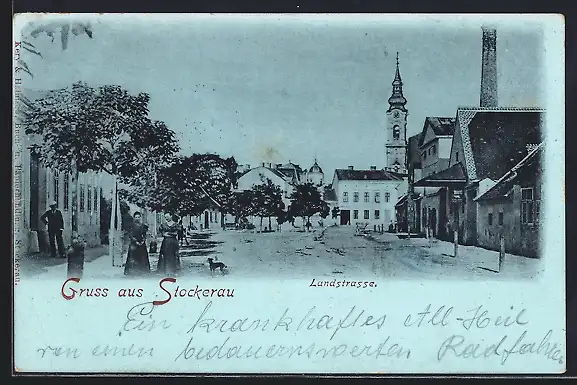 Gruss aus Stockerau
Landstrasse.
Ein krankhaftes All-Heil
von einem bedauernswerten Radfahrer